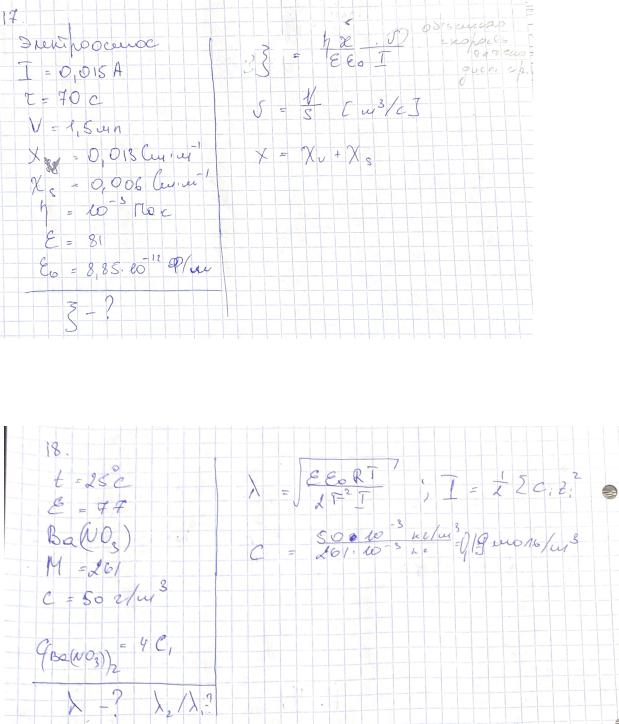 17.
Электроосмос
I = 0,015 А
τ = 70 с
V = 1,5 мл
χᵥ = 0,013 См·м⁻¹
χₛ = 0,006 См·м⁻¹
η = 10⁻³ Па с
ε = 81
ε₀ = 8,85·10⁻¹² Ф/м
ξ - ?
ξ = η χ υ / ε ε₀ I
объемная
скорость
υ = V/τ [м³/с]
χ = χᵥ + χₛ
18.
t = 25°C
ε = 77
Ba(NO₃)
M = 261
c = 50 г/м³
C Ba(NO₃)₂ = 4 C₁
λ - ? λ₂/λ₁ - ?
λ = √(ε ε₀ R T / 2 F² I) ; I = 1/2 Σ cᵢ zᵢ²
C = 50·10⁻³ кг/м³ / 261·10⁻³ кг = 0,19 моль/м³